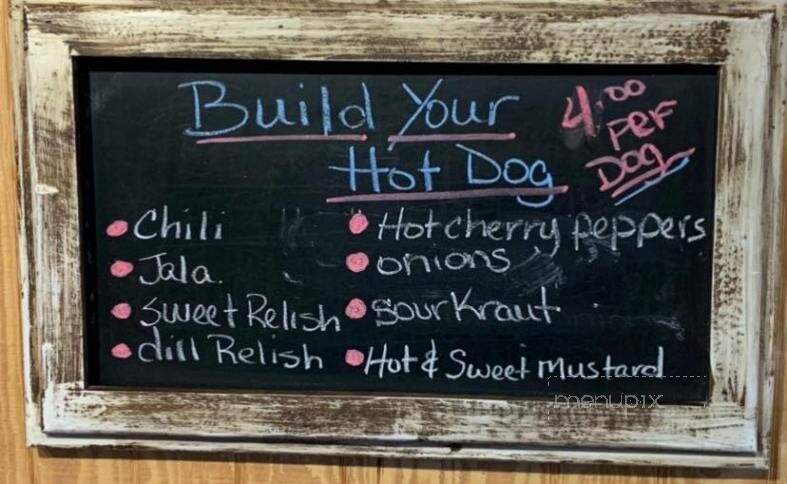 Build Your
Hot Dog
4.00
per
Dog
Chili
Jala.
Sweet Relish
dill Relish
Hot cherry peppers
onions
Sour Kraut
Hot & Sweet Mustard
menupix